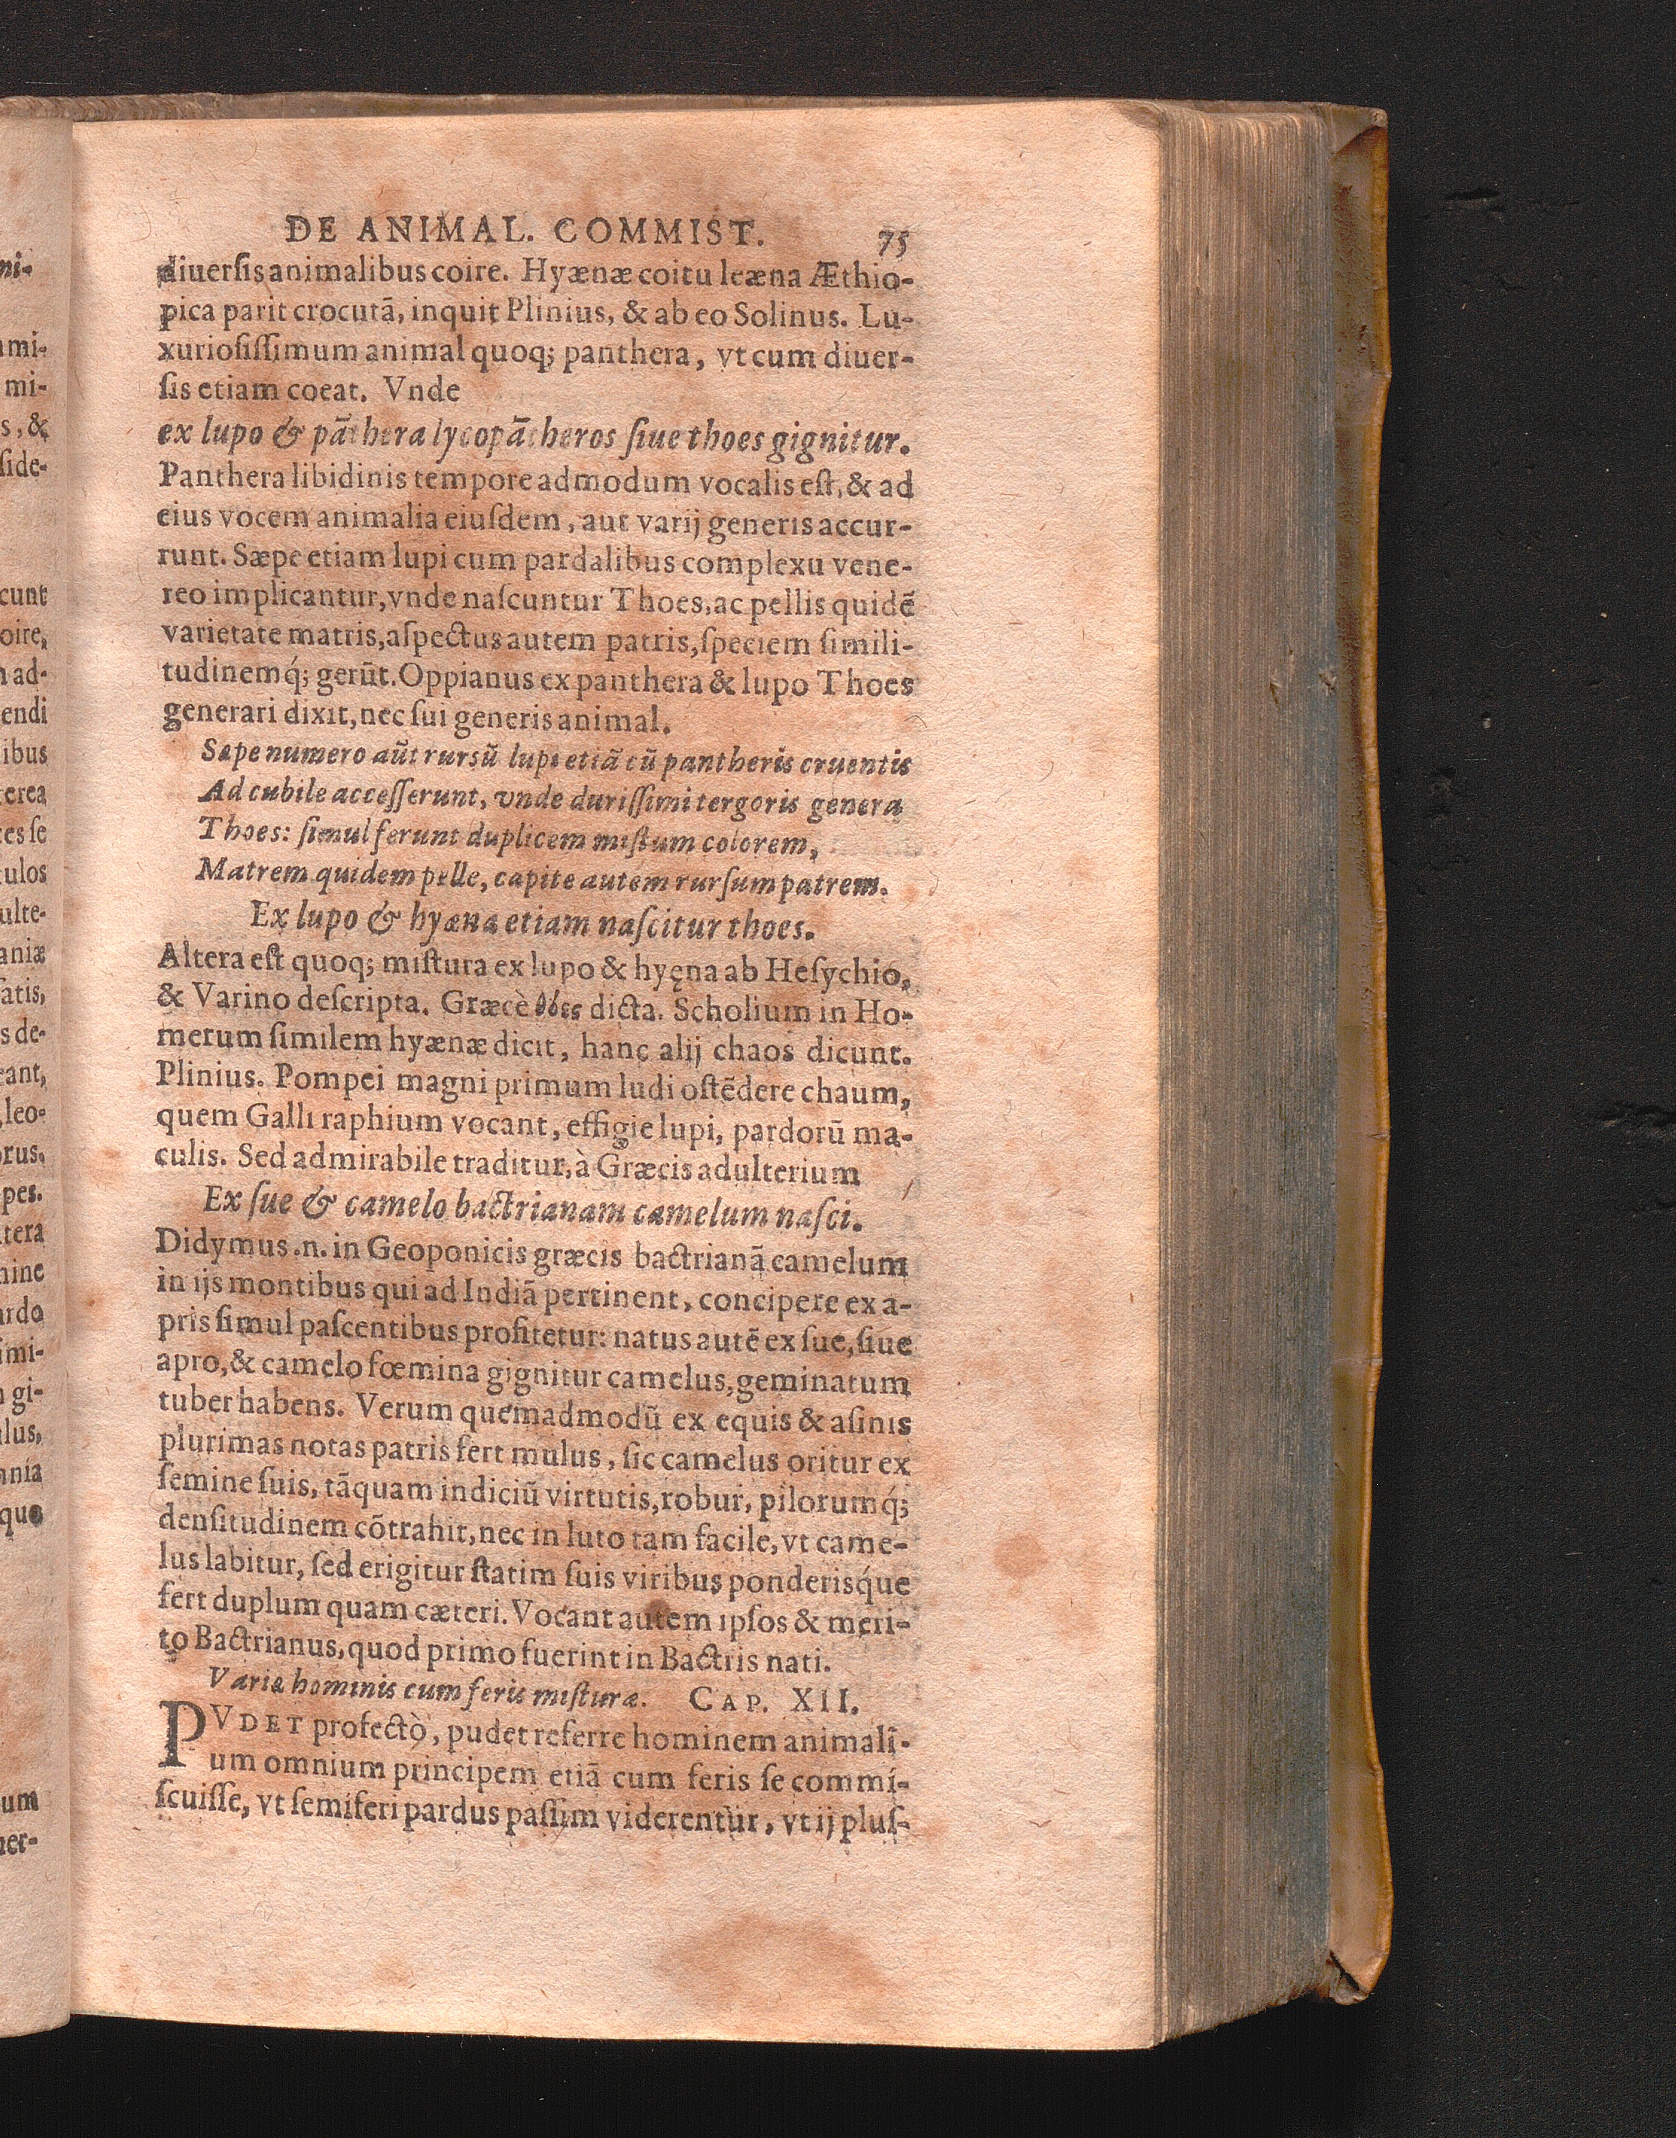 DE ANIMAL. COMMIST. 75
diuerſis animalibus coire. Hyænæ coitu leæna Æthio-
pica parit crocutā, inquit Plinius, & ab eo Solinus. Lu-
xurioſiſſimum animal quoq; panthera, vt cum diuer-
ſis etiam coeat. Vnde
ex lupo & pāthera lycopātheros ſiue thoes gignitur.
Panthera libidinis tempore admodum vocalis eſt, & ad
eius vocem animalia eiuſdem, aut varij generis accur-
runt. Sæpe etiam lupi cum pardalibus complexu vene-
reo implicantur, vnde naſcuntur Thoes, ac pellis quidē
varietate matris, aſpectus autem patris, ſpeciem ſimili-
tudinemq́; gerūt. Oppianus ex panthera & lupo Thoes
generari dixit, nec ſui generis animal.
Sæpe numero aūt rursū lupi etiā cū pantheris cruentis
Ad cubile acceſſerunt, vnde duriſſimi tergoris genera
Thoes: ſimul ferunt duplicem miſtum colorem,
Matrem quidem pelle, capite autem rurſum patrem.
Ex lupo & hyæna etiam naſcitur thoes.
Altera eſt quoq; miſtura ex lupo & hyęna ab Heſychio,
& Varino deſcripta. Græcè θόες dicta. Scholium in Ho-
merum ſimilem hyænæ dicit, hanc alij chaos dicunt.
Plinius. Pompei magni primum ludi oſtēdere chaum,
quem Galli raphium vocant, effigie lupi, pardorū ma-
culis. Sed admirabile traditur, à Græcis adulterium
Ex ſue & camelo bactrianam camelum naſci.
Didymus .n. in Geoponicis græcis bactrianā camelum
in ijs montibus qui ad Indiā pertinent, concipere ex a-
pris ſimul paſcentibus profitetur: natus autē ex ſue, ſiue
apro, & camelo fœmina gignitur camelus, geminatum
tuber habens. Verum quemadmodū ex equis & aſinis
plurimas notas patris fert mulus, ſic camelus oritur ex
ſemine ſuis, tāquam indiciū virtutis, robur, pilorumq́;
denſitudinem cōtrahit, nec in luto tam facile, vt came-
lus labitur, ſed erigitur ſtatim ſuis viribus ponderisq́ue
fert duplum quam cæteri. Vocant autem ipſos & meri-
to Bactrianus, quod primo fuerint in Bactris nati.
Variæ hominis cum feris miſturæ. CAP. XII.
PVDET profectò, pudet referre hominem animali-
um omnium principem etiā cum feris ſe commi-
ſcuiſſe, vt ſemiferi pardus paſſim viderentur, vt ij pluſ-